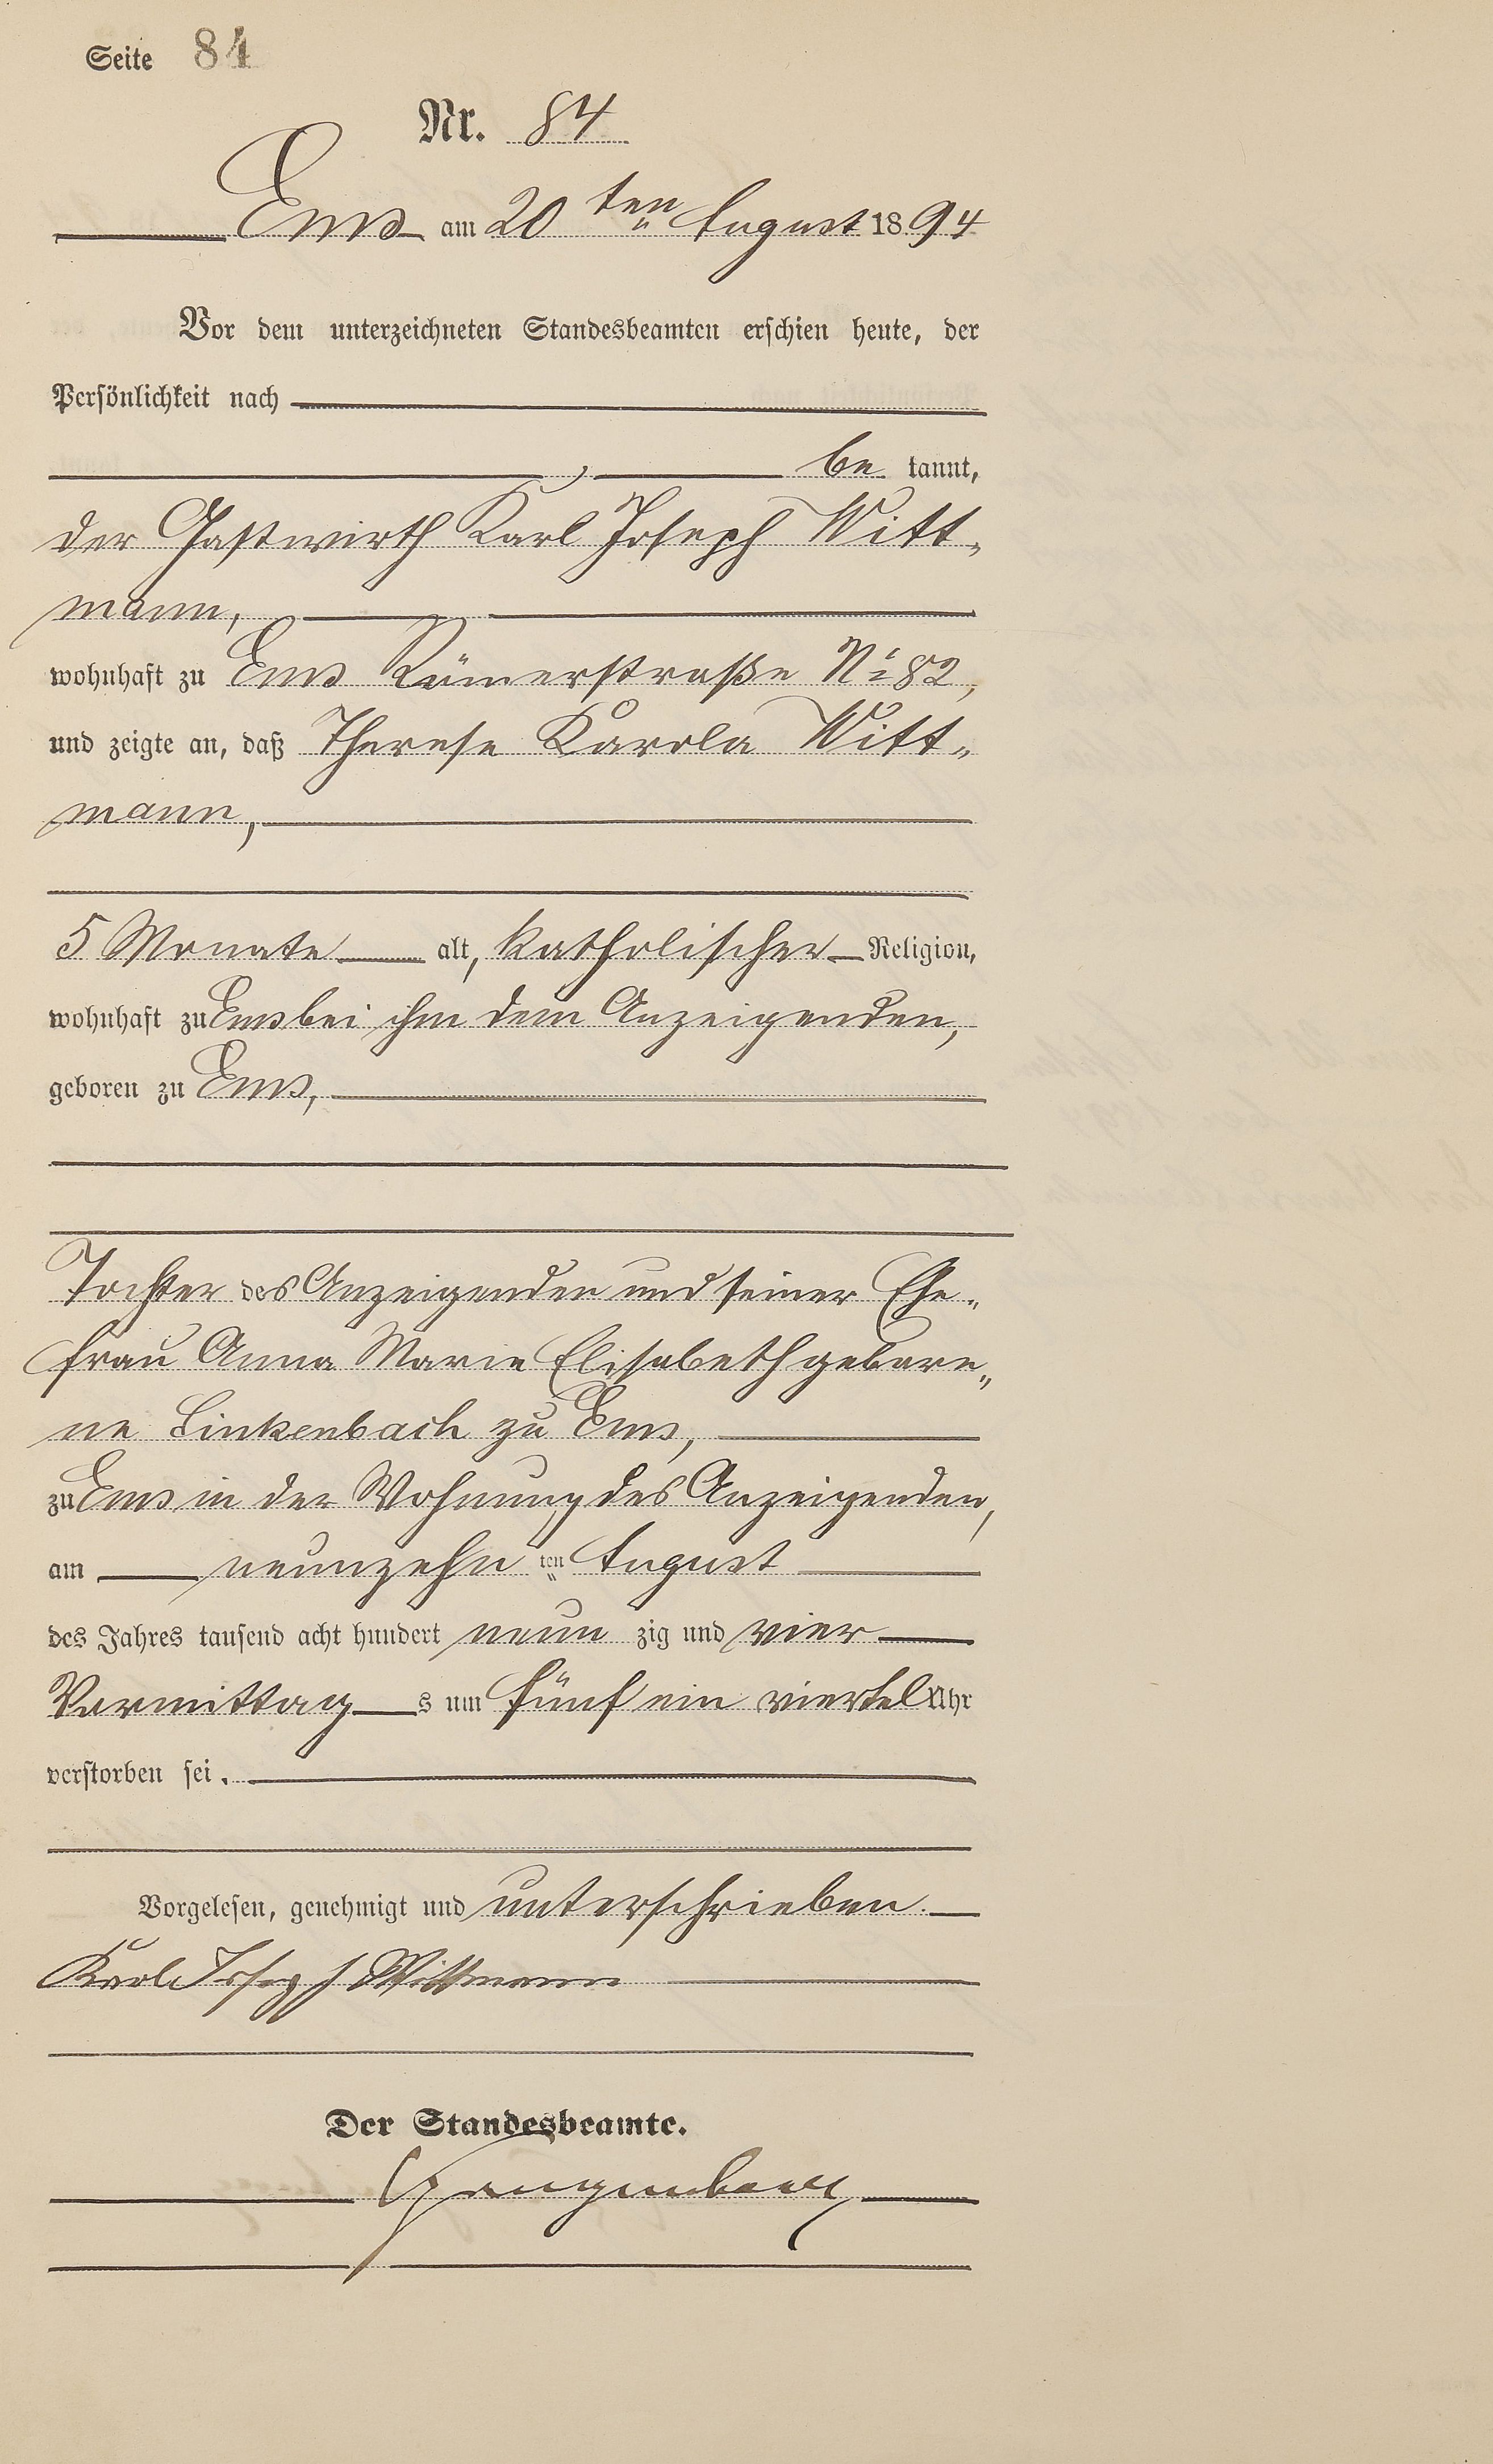 Seite 84
Nr. 84
Ems am 20ten August 1894
Vor dem unterzeichneten Standesbeamten erschien heute, der
Persönlichkeit nach
be kannt,
der Gastwirth Karl Joseph Witt-
mann,
wohnhaft zu Ems Römerstraße No 82,
und zeigte an, daß Therese Karola Witt-
mann,
5 Monate alt, katholischer Religion,
wohnhaft zu Ems bei ihm dem Anzeigenden,
geboren zu Ems,
Tochter des Anzeigenden und seiner Ehe-
frau Anna Marie Elisabeth gebore-
ne Linkenbach zu Ems,
zu Ems in der Wohnung des Anzeigenden,
am neunzehn ten August
des Jahres tausend acht hundert neun zig und vier
Vormittag s um fünf ein viertel Uhr
verstorben sei.
Vorgelesen, genehmigt und unterschrieben.
Karl Joseph Wittmann
Der Standesbeamte.